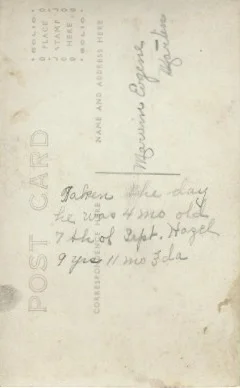 SOLIO
PLACE
STAMP
HERE
SOLIO
POST CARD
CORRESPONDENCE HERE
NAME AND ADDRESS HERE
Eugene
Taken the day
he was 4 mo old
7th of Sept. Hazel
9 yrs 11 mo 3 da